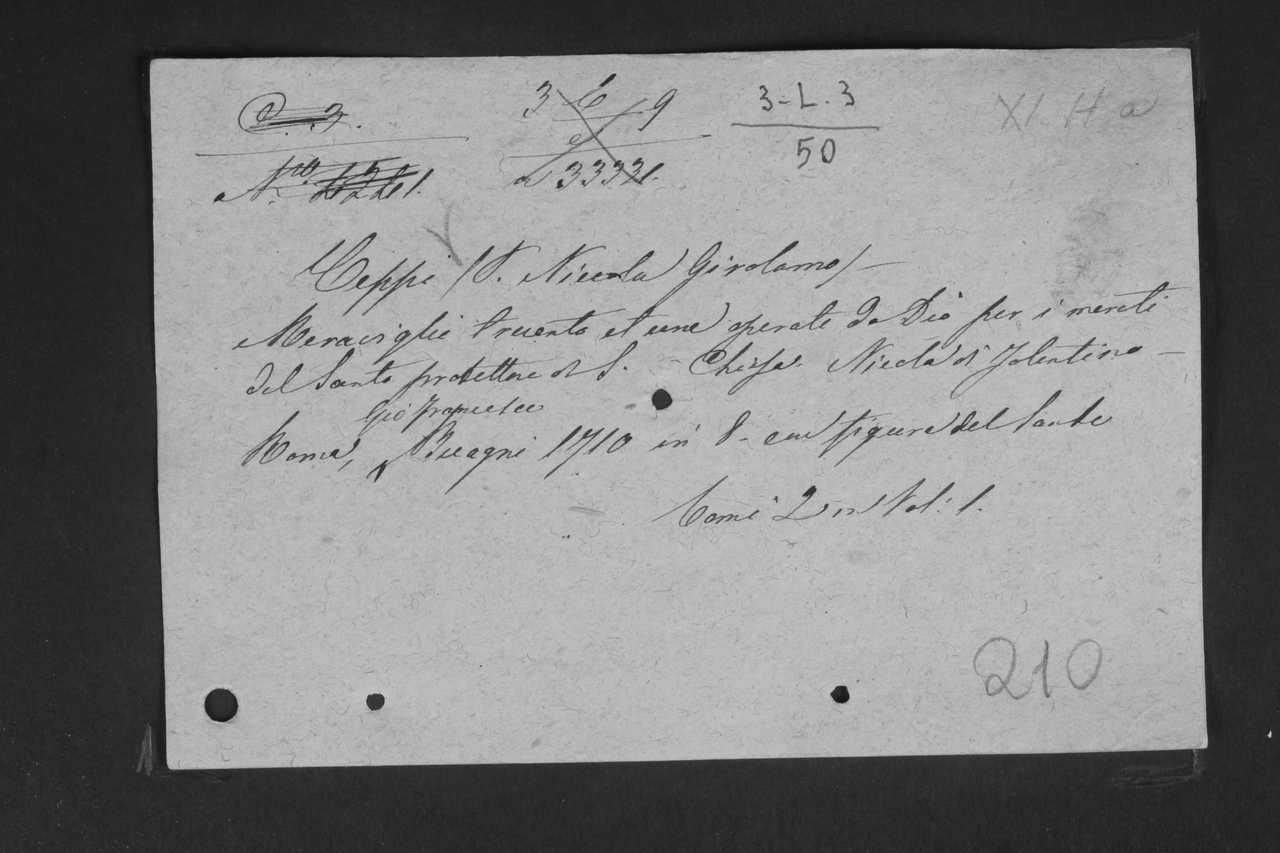 3 E 9
3-L.3
50
XI H a
Ceppi (P. Niccola Girolamo) —
Meraviglie trecento et una operate da Dio per i meriti
del Santo protettore di S. Chiesa Nicola di Tolentino —
Gio Francesco
Roma, Buagni 1710 in 8 - con figura del Santo
Tomi 2 in Vol: 1.
210